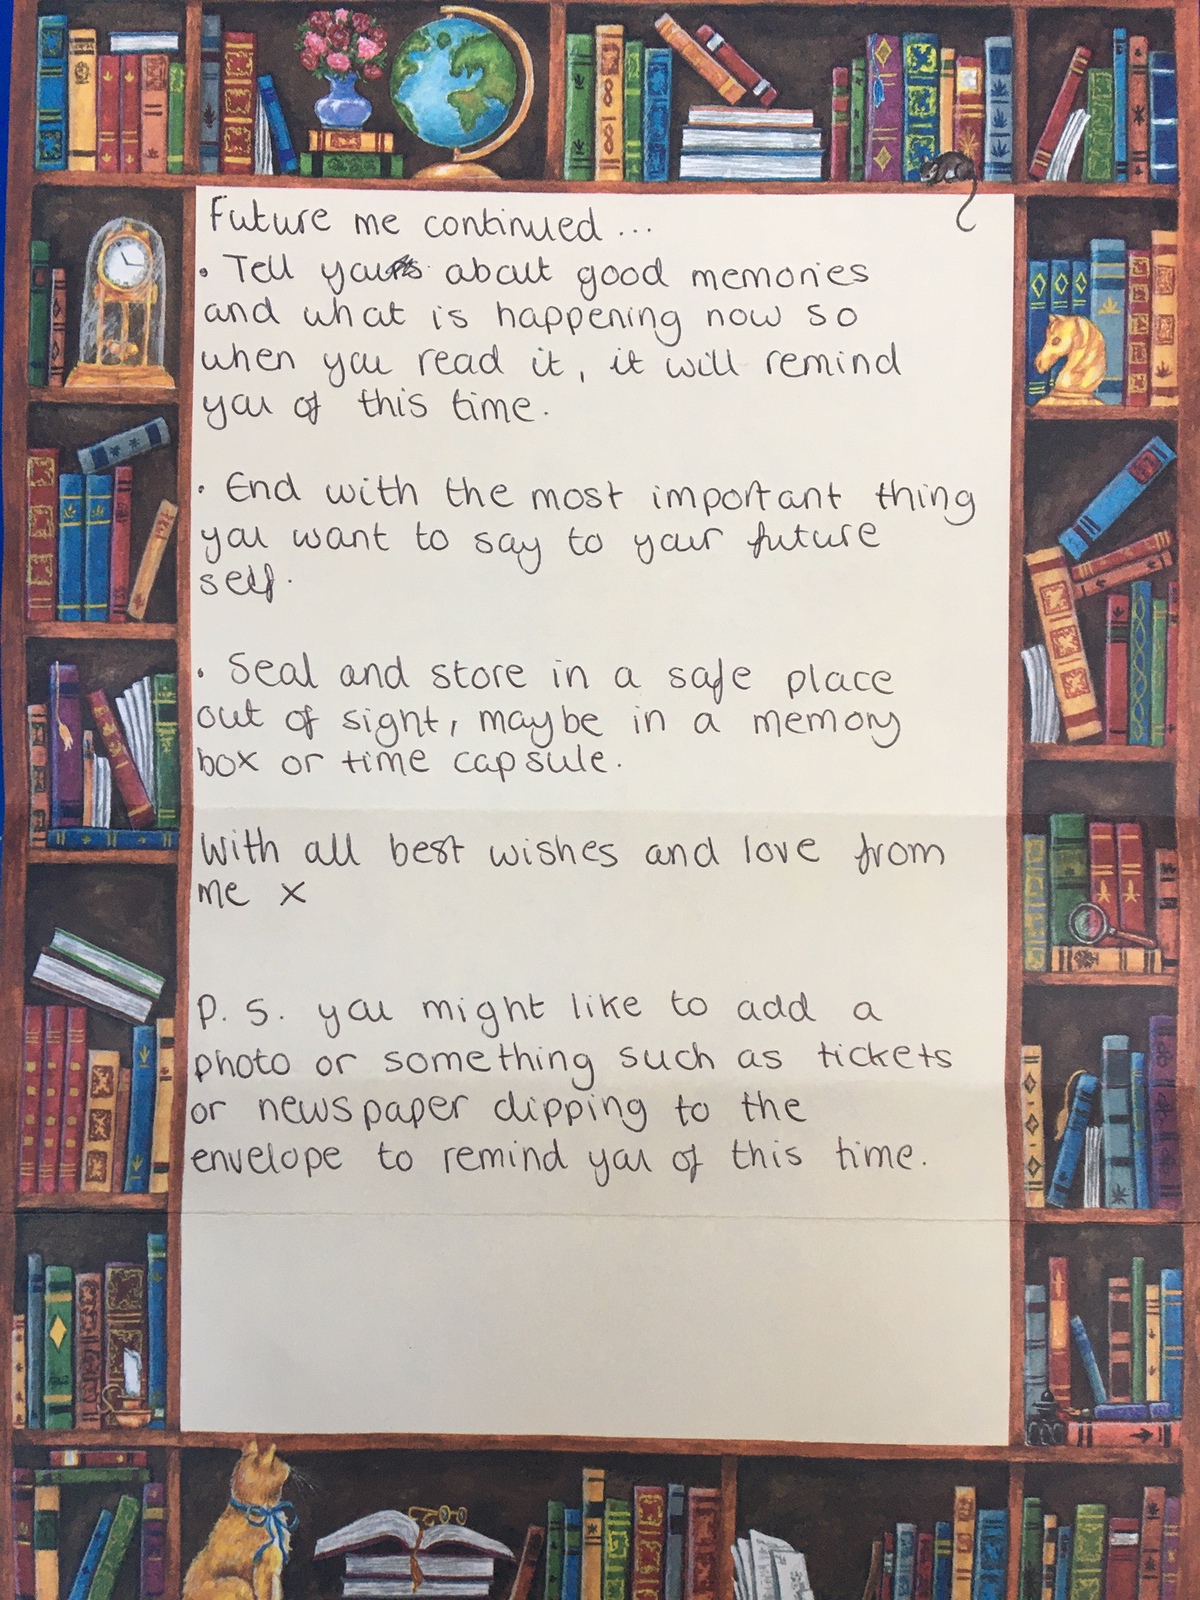 Future me continued...
• Tell you about good memories
and what is happening now so
when you read it, it will remind
you of this time.
• End with the most important thing
you want to say to your future
self.
• Seal and store in a safe place
out of sight, maybe in a memory
box or time capsule.
With all best wishes and love from
me x
P. S. you might like to add a
photo or something such as tickets
or newspaper clipping to the
envelope to remind you of this time.